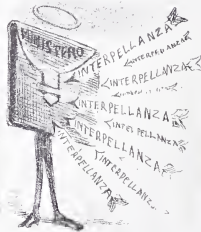 MINISTERO
INTERPELLANZA
INTERPELLANZA
INTERPELLANZA
INTERPELLANZA
INTERPELLANZA
INTERPELLANZA
INTERPELLANZA
INTERPELLANZA
INTERPELLANZA